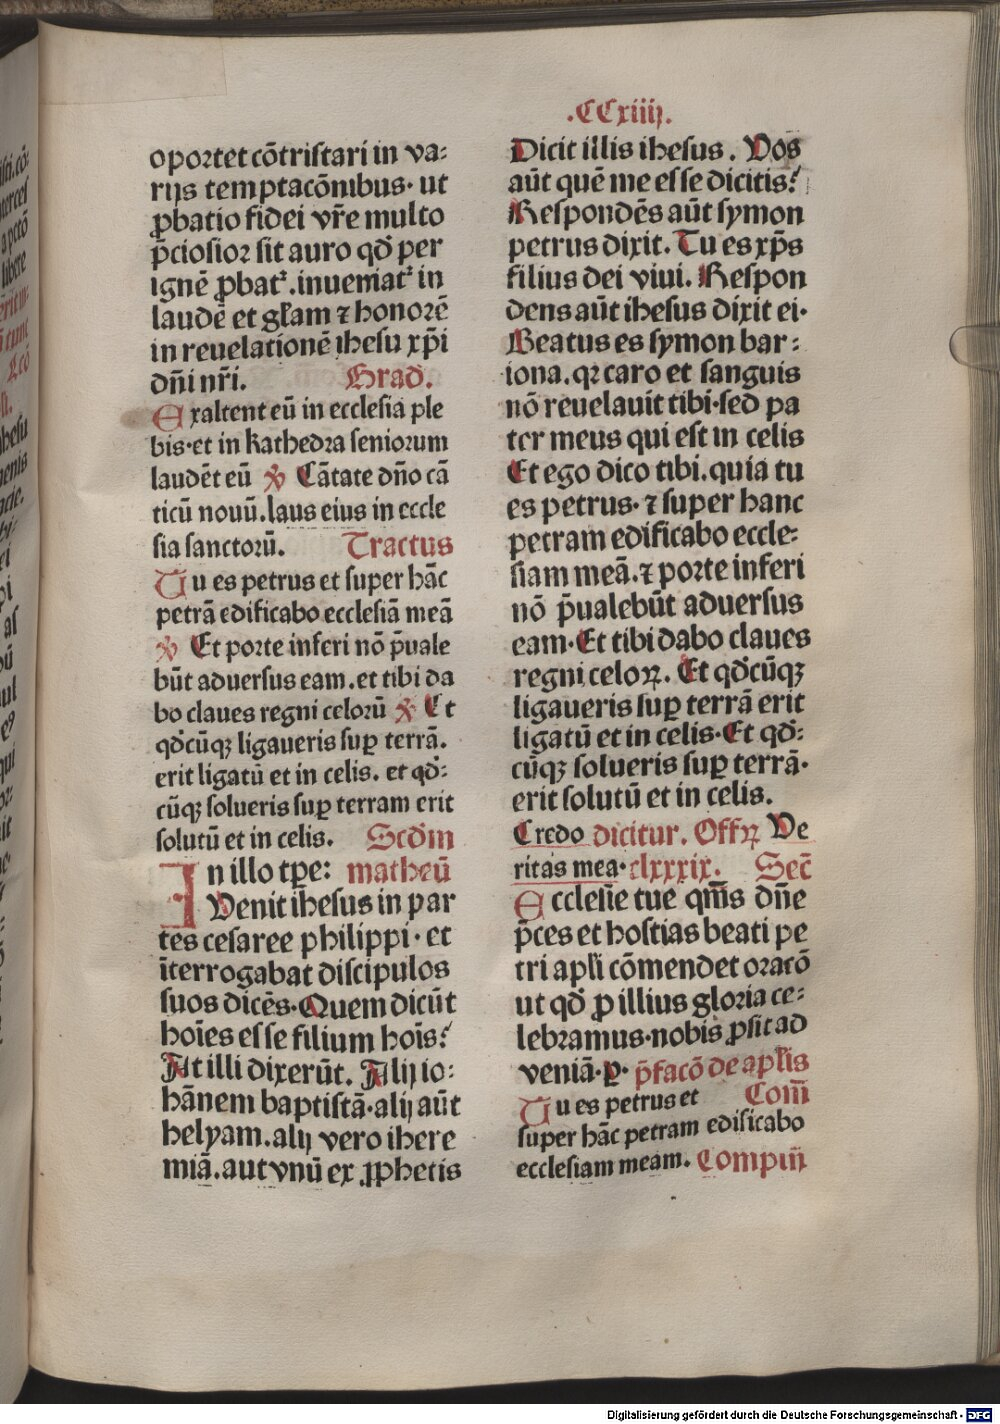 .CCxiiij.
oportet cōtristari in va:
rijs temptacōnibus· ut
ꝓbatio fidei vr̄e multo
p̄ciosior sit auro qd̓ per
ignē ꝓbatᷣ.inueniatᷣ in
laudē et gl̄am ⁊ honorē
in reuelationē ihesu xp̄i
dn̄i nr̄i. Grad.
Exaltent eū in ecclesia ple
bis·et in kathedra seniorum
laudēt eū ℣ Cātate dn̄o cā
ticū nouū.laus eius in eccle
sia sanctorū. Tractus
Tu es petrus et super hāc
petrā edificabo ecclesiā meā
℣ Et porte inferi nō p̄uale
būt aduersus eam.et tibi da
bo claues regni celorū ℣ Et
qd̓cūqꝫ ligaueris suꝑ terrā.
erit ligatū et in celis. et qd̓:
cūqꝫ solueris suꝑ terram erit
solutū et in celis. Scd̓m
In illo tꝑe: matheū
Venit ihesus in par
tes cesaree philippi· et
īterrogabat discipulos
suos dicēs·Quem dicūt
hoīes esse filium hoīs?
At illi dixerūt. Alij io:
hānem baptistā·alij aūt
helyam.alij vero ihere
miā.aut vnū ex ꝓphetis
Dicit illis ihesus. Vos
aūt quē me esse dicitis?
Respondēs aūt symon
petrus dixit. Tu es xp̄s
filius dei viui. Respon
dens aūt ihesus dixit ei·
Beatus es symon bar:
iona.qꝛ caro et sanguis
nō reuelauit tibi·sed pa
ter meus qui est in celis
Et ego dico tibi.quia tu
es petrus· ⁊ super hanc
petram edificabo eccle:
siam meā.⁊ porte inferi
nō p̄ualebūt aduersus
eam·Et tibi dabo claues
regni celoꝝ. Et qd̓cūqꝫ
ligaueris suꝑ terrā erit
ligatū et in celis·Et qd̓:
cūqꝫ solueris suꝑ terrā·
erit solutū et in celis.
Credo dicitur. Offꝝ Ve
ritas mea· clxxxix. Sec̄
Ecclesie tue qm̄s dn̄e
p̄ces et hostias beati pe
tri apl̓i cōmendet oracō
ut qd̓ ꝓ illius gloria ce:
lebramus·nobis ꝓsit ad
veniā·ꝑ· p̄facō de apl̓is
Tu es petrus et Com̄
super hāc petram edificabo
ecclesiam meam. Complīn
Digitalisierung gefördert durch die Deutsche Forschungsgemeinschaft - DFG